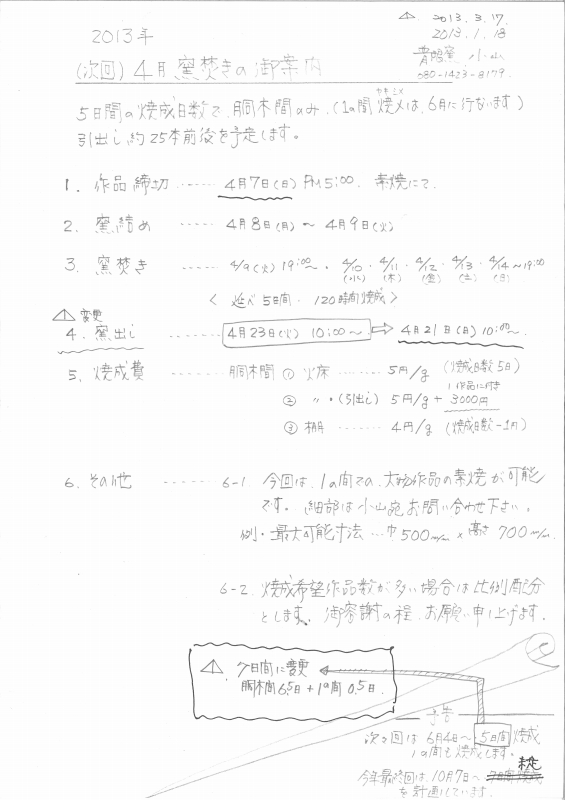 ⚠ 2013.3.17.
2013.1.18
2013年
青閣窯 小山
(次回) 4月 窯焚きの御案内
080-1423-8179.
ヤキシメ
5日間の焼成日数で、胴木間のみ、(1の間焼〆は、6月に行ないます)
引出し、約25本前後を予定します。
1. 作品締切 ------ 4月7日(日) PM5:00. 素焼にて.
2. 窯詰め ------ 4月8日(月) ~ 4月9日(火)
3. 窯焚き ------ 4/9(火) 19:00~・4/10・4/11・4/12・4/13・4/14~19:00
(水) (木) (金) (土) (日)
< 延べ 5日間・120時間焼成 >
変更
4. 窯出し ------ 4月23日(火) 10:00~ ⇒ 4月21日(日) 10:00~.
5. 焼成費 ------ 胴木間 ① 火床 ------ 5円/g (焼成日数5日)
1作品に付き
② 〃・(引出し) 5円/g + 3000円
③ 棚 ------ 4円/g (焼成日数-1日)
6. その他 ------ 6-1 今回は、1の間での、大物作品の素焼が可能
です。細部は小山宛お問い合わせ下さい。
例・最大可能寸法 … 巾500m/m × 高さ 700m/m.
6-2. 焼成希望作品数が多い場合は比例配分
とします。御容謝の程、お願い申し上げます.
7日間に変更
胴木間6.5日 + 1の間 0.5日.
予告
次々回は 6月4日~ 5日間焼成
1の間も焼成します。
未定
今年最終回は、10月7日~ 7日間焼成
を計画しています.